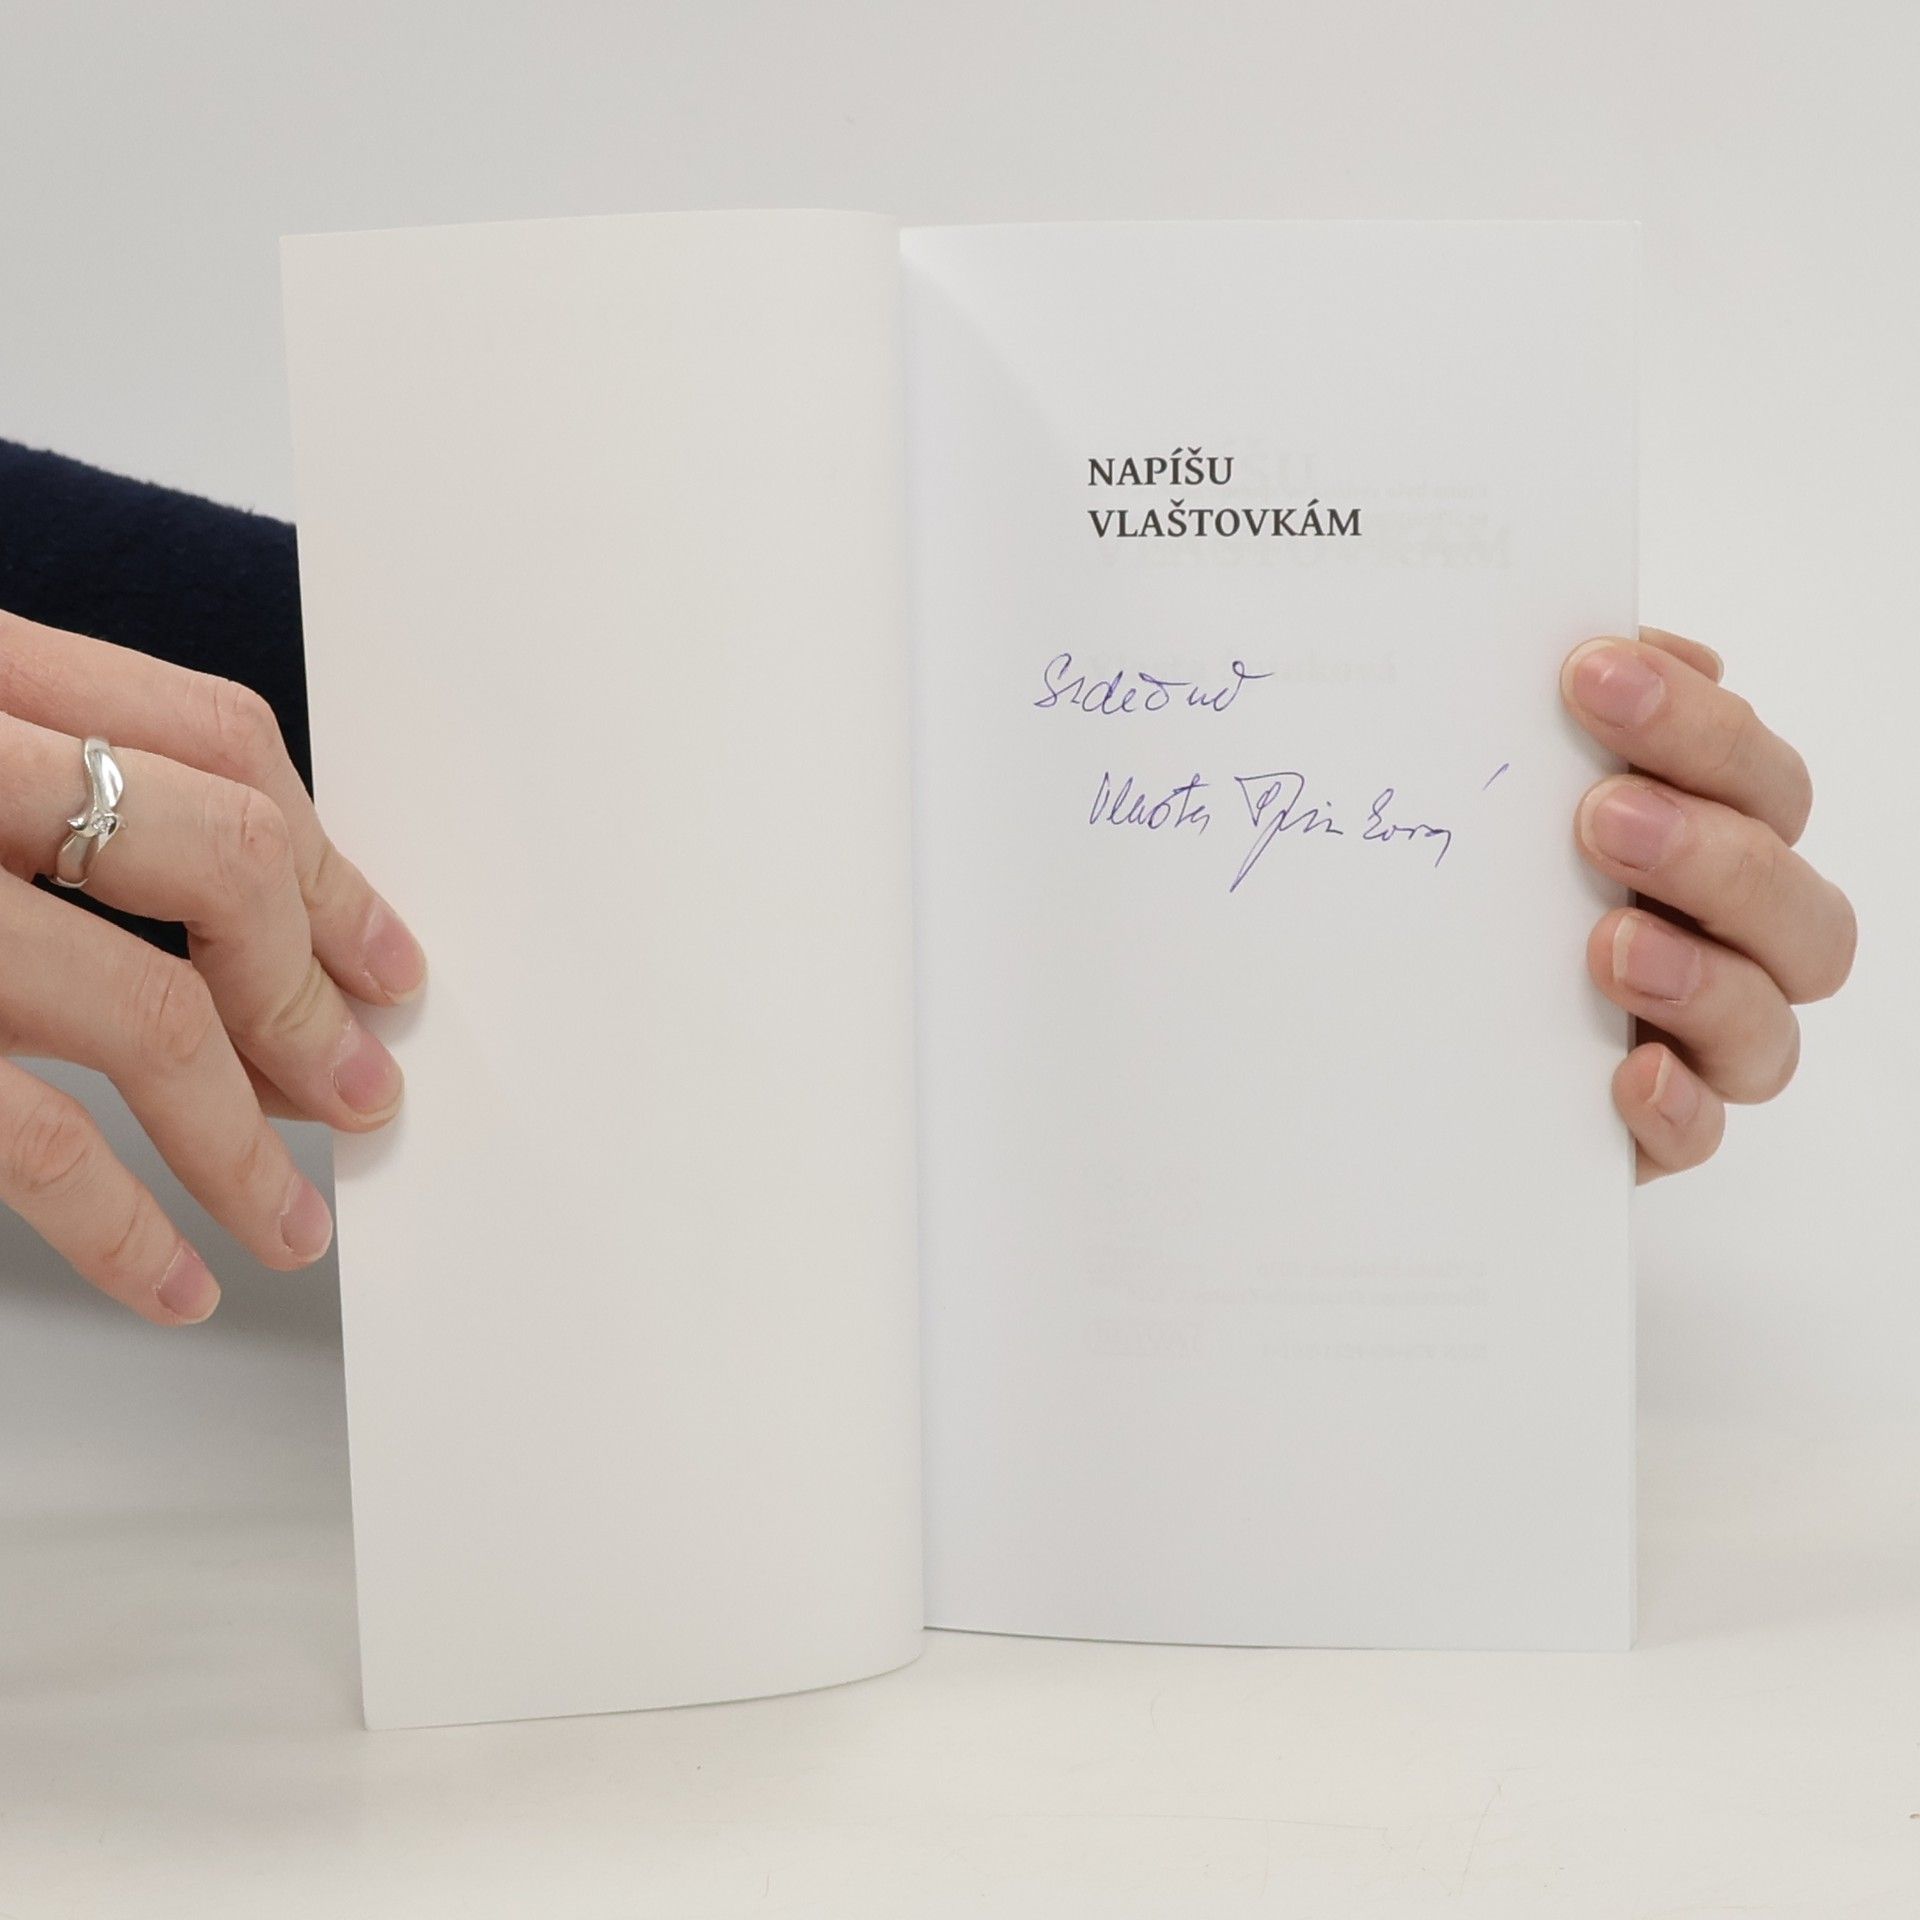 NAPÍŠU
VLAŠTOVKÁM
Srdečně
Vlasta